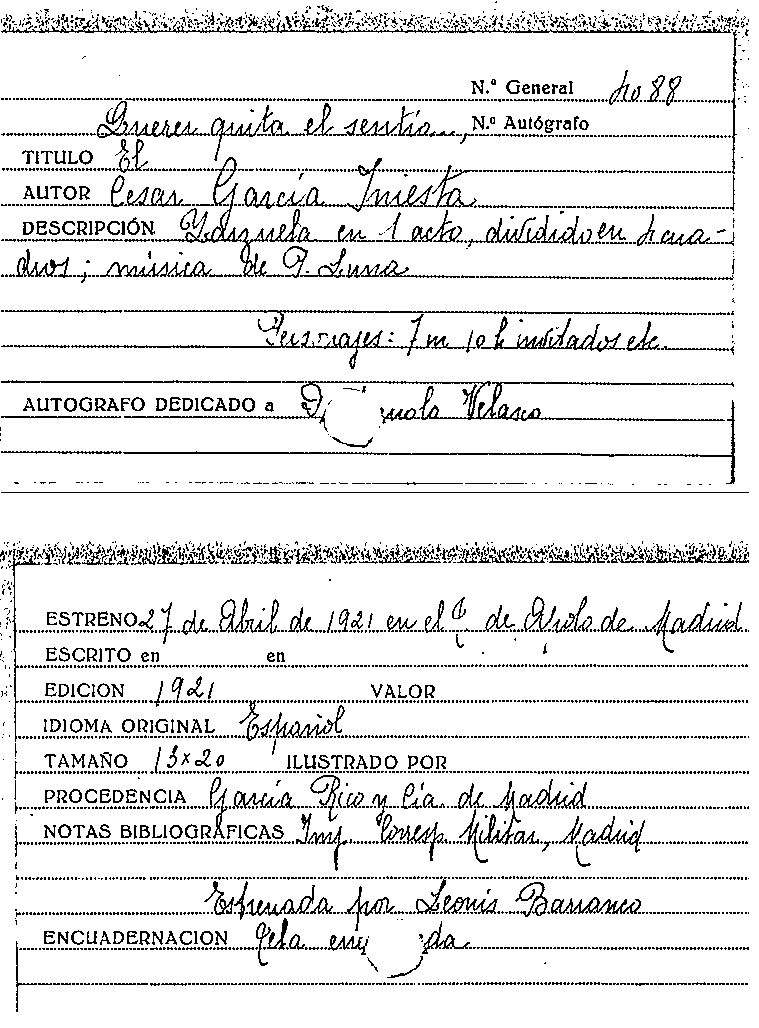 N.º General 4088
Querer quita el sentío..., N.º Autógrafo
TITULO El
AUTOR Cesar García Iniesta
DESCRIPCIÓN Zarzuela en 1 acto, dividido en 4 cua-
dros; música de P. Luna
Personajes: 7 m 10 h invitados etc.
AUTOGRAFO DEDICADO a Velasco
ESTRENO 27 de Abril de 1921 en el T. de Apolo de Madrid
ESCRITO en en
EDICION 1921 VALOR
IDIOMA ORIGINAL Español
TAMAÑO 13x20 ILUSTRADO POR
PROCEDENCIA García Rico y Cía. de Madrid
NOTAS BIBLIOGRÁFICAS Imp. Corresp. Militar, Madrid
Estrenada por Leonis Barranco
ENCUADERNACION Tela